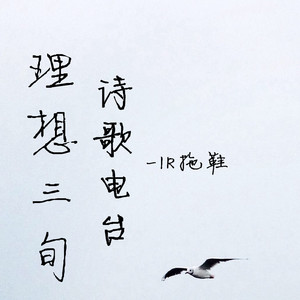 理想三旬
诗歌电台
-1R拖鞋